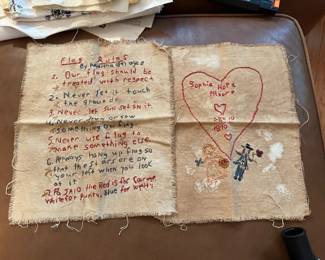 Flag Rules
By
1. Our flag should be
treated with respect
2. Never let it touch
the ground
3. Never let sun set on it
4. Never draw or sew
something on flag
5. Never use flag to
make something else
6. Always hang up flag so
that the stars are on
your left when you look
at it
7. the Red is for Courage
White for Purity, Blue for
Sophia Hope
1890